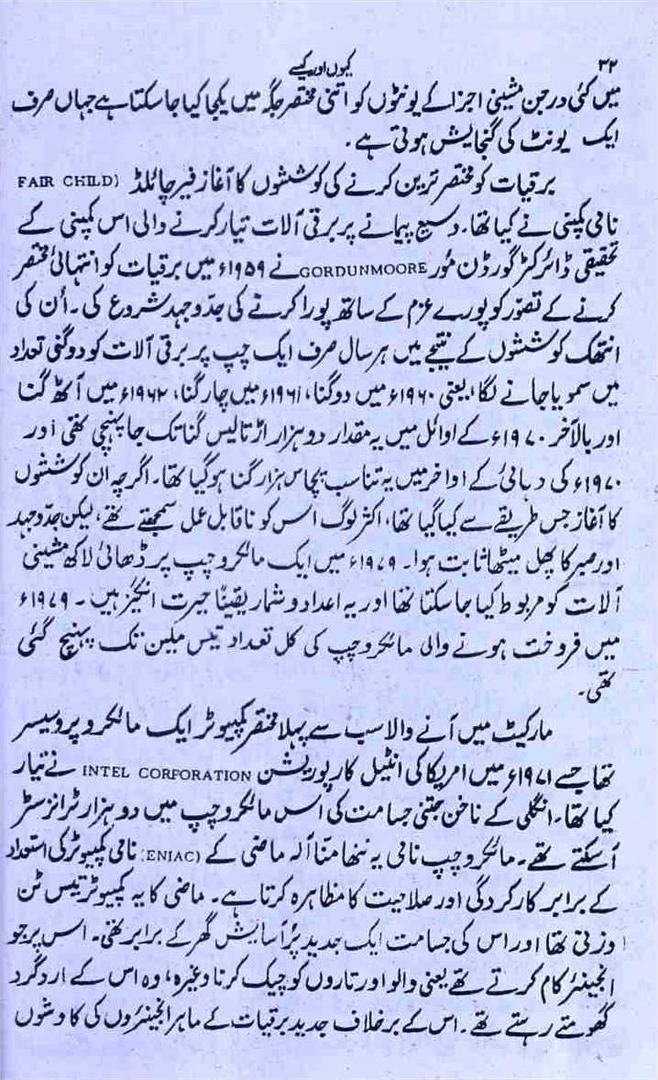 ۳۲
کیوں اور کیسے
میں کئی درجن مشینی اجزا کے یونٹوں کو اتنی مختصر جگہ میں یکجا کیا جا سکتا ہے جہاں صرف
ایک یونٹ کی گنجایش ہوتی ہے۔
برقیات کو مختصر ترین کرنے کی کوششوں کا آغاز فیر چائلڈ (FAIR CHILD
نامی کمپنی نے کیا تھا۔ وسیع پیمانے پر برقی آلات تیار کرنے والی اس کمپنی کے
تحقیقی ڈائرکٹر گورڈن مُور GORDUNMOORE نے ۱۹۵۹ء میں برقیات کو انتہائی مختصر
کرنے کے تصوّر کو پورے عزم کے ساتھ پورا کرنے کی جدّوجہد شروع کی۔ اُن کی
انتھک کوششوں کے نتیجے میں ہر سال صرف ایک چپ پر برقی آلات کو دوگنی تعداد
میں سمویا جانے لگا، یعنی ۱۹۶۰ء میں دوگنا، ۱۹۶۱ء میں چار گنا، ۱۹۶۲ء میں آٹھ گنا
اور بالآخر ۱۹۷۰ء کے اوائل میں یہ مقدار دو ہزار اڑتالیس گنا تک جا پہنچی تھی اور
۱۹۷۰ء کی دہائی کے اواخر میں یہ تناسب پچاس ہزار گنا ہو گیا تھا۔ اگرچہ ان کوششوں
کا آغاز جس طریقے سے کیا گیا تھا، اکثر لوگ اس کو ناقابل عمل سمجھتے تھے، لیکن جدّوجہد
اور صبر کا پھل میٹھا ثابت ہوا۔ ۱۹۷۹ء میں ایک مائکروچپ پر ڈھائی لاکھ مشینی
آلات کو مربوط کیا جا سکتا تھا اور یہ اعداد و شمار یقیناً حیرت انگیز ہیں۔ ۱۹۷۹ء
میں فروخت ہونے والی مائکروچپ کی کل تعداد تیس ملین تک پہنچ گئی
تھی۔
مارکیٹ میں آنے والا سب سے پہلا مختصر کمپیوٹر ایک مائکرو پروسیسر
تھا جسے ۱۹۷۱ء میں امریکا کی انٹیل کارپوریشن INTEL CORPORATION نے تیار
کیا تھا۔ انگلی کے ناخن جتنی جسامت کی اس مائکروچپ میں دو ہزار ٹرانزسٹر
آ سکتے تھے۔ مائکروچپ نامی یہ ننھا منّا آلہ ماضی کے (ENIAC) نامی کمپیوٹر کی استعداد
کے برابر کارکردگی اور صلاحیت کا مظاہرہ کرتا ہے۔ ماضی کا یہ کمپیوٹر تیس ٹن
وزنی تھا اور اس کی جسامت ایک جدید پُرآسایش گھر کے برابر تھی۔ اس پر جو
انجینئر کام کرتے تھے یعنی والو اور تاروں کو چیک کرنا وغیرہ، وہ اس کے اردگرد
گھومتے رہتے تھے۔ اس کے برخلاف جدید برقیات کے ماہر انجینئروں کی کاوشوں